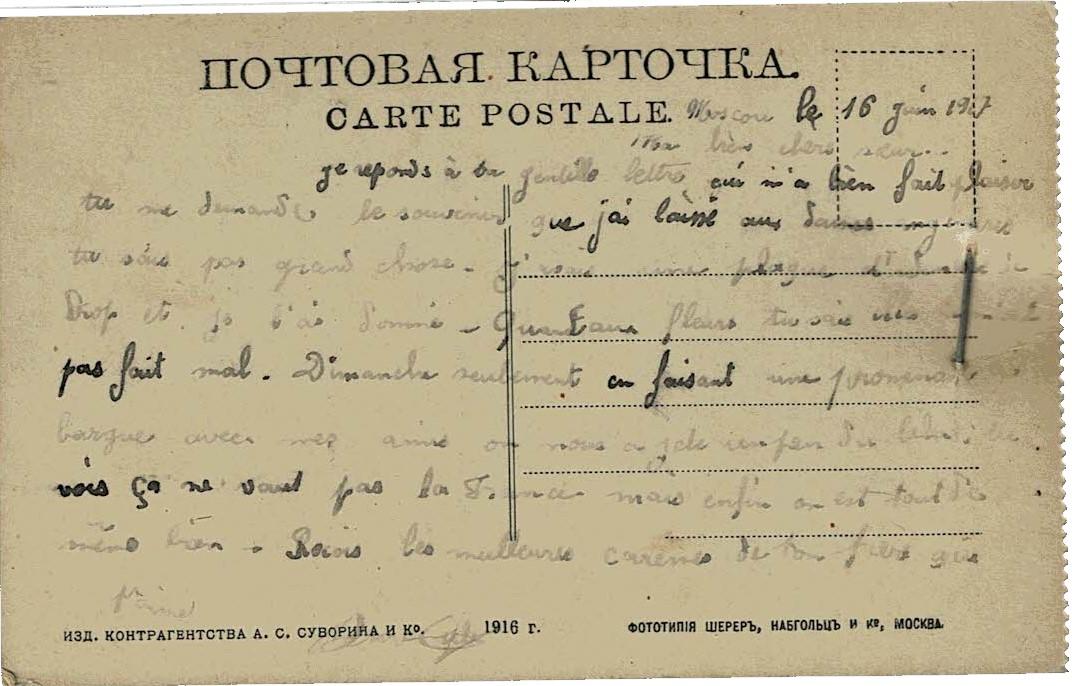 ПОЧТОВАЯ КАРТОЧКА.
CARTE POSTALE.
Moscou le 16 juin 1917
Ma bien chere sœur..
je reponds à ta gentille lettre qui m'a bien fait plaisir
tu me demandes le souvenir que j'ai laissé aux dames
tu sais pas grand chose. J'avais une plaque d'
Drop et je l'ai donné - Quand aux fleurs tu sais elles
pas fait mal. Dimanche seulement en faisant une promenade
barque avec mes amis on nous a jeté un peu du
vois ça ne vaut pas la France mais enfin on est tout de
même bien - Recois les meilleures caresses de ton frère qui
t'aime
ИЗД. КОНТРАГЕНТСТВА А. С. СУВОРИНА И Кº. 1916 г. ФОТОТИПІЯ ШЕРЕРЪ, НАБГОЛЬЦЪ И Кº, МОСКВА.